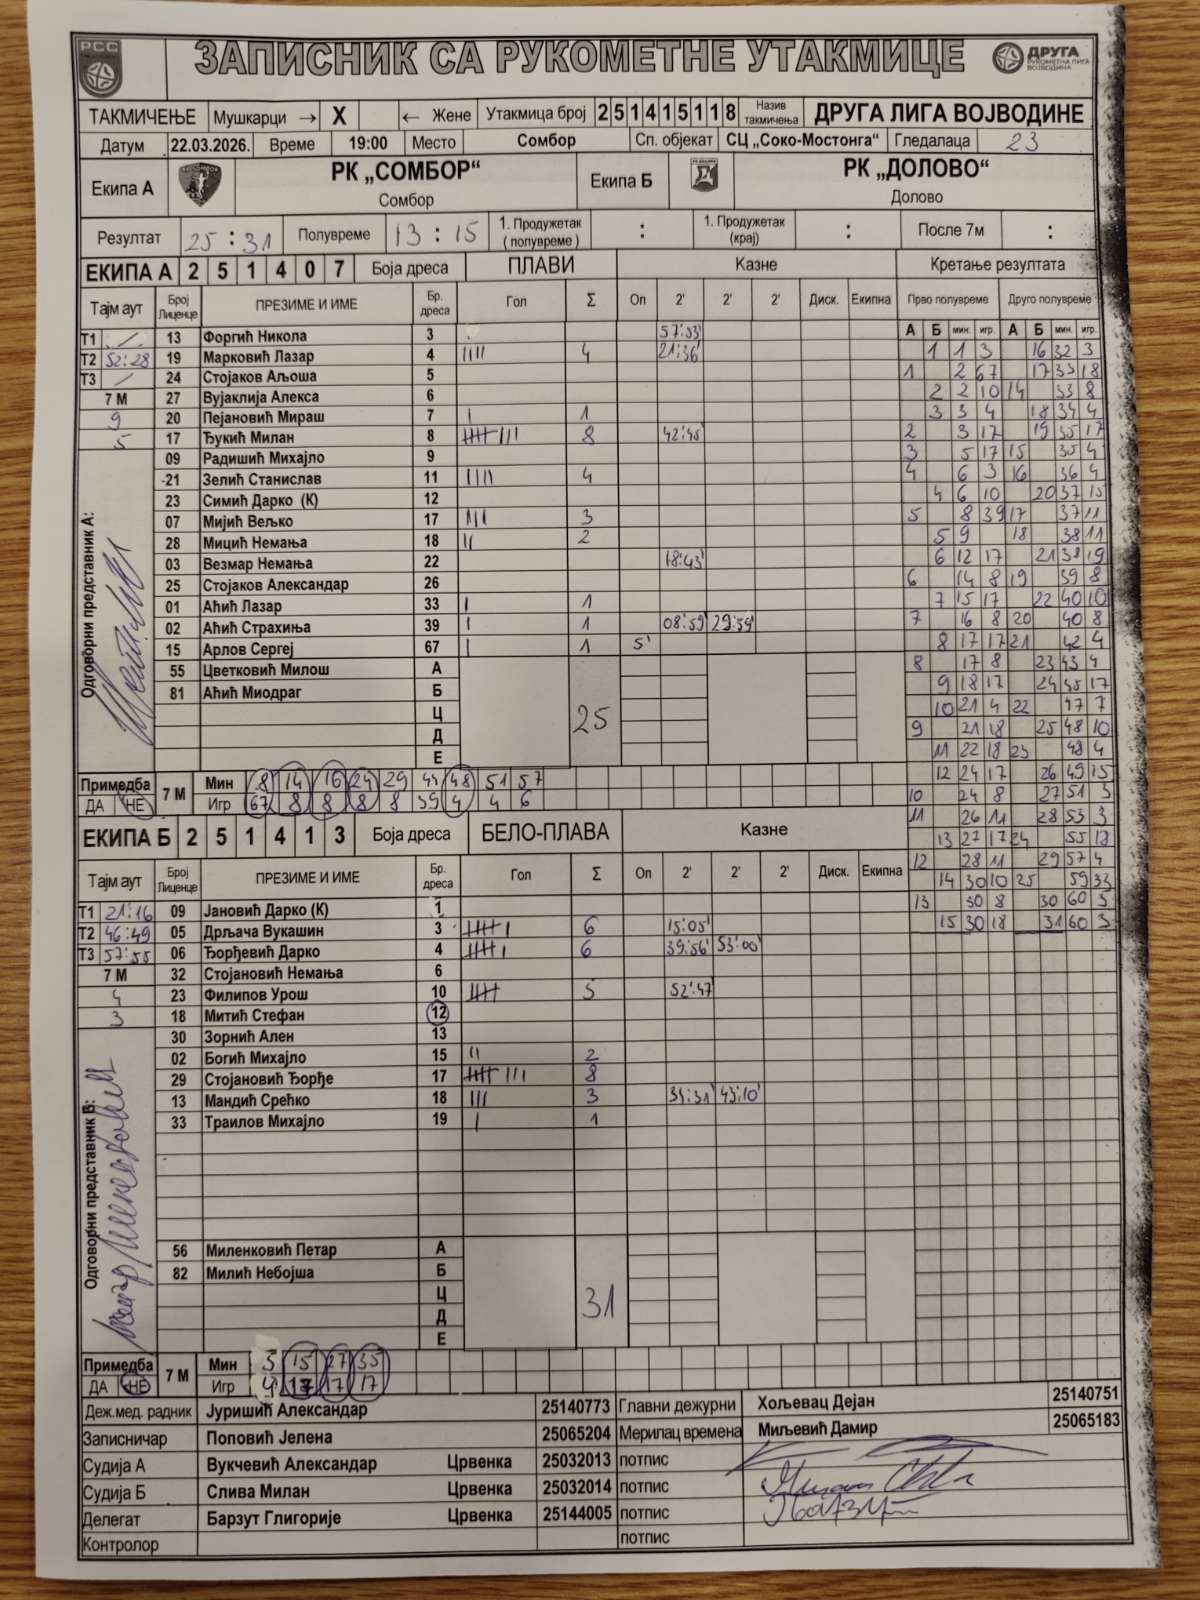 РСС
ЗАПИСНИК СА РУКОМЕТНЕ УТАКМИЦЕ
ДРУГА
РУКОМЕТНА ЛИГА
ВОЈВОДИНА
ТАКМИЧЕЊЕ Мушкарци → X ← Жене Утакмица број 251415118 Назив такмичења ДРУГА ЛИГА ВОЈВОДИНЕ
Датум 22.03.2026. Време 19:00 Место Сомбор Сп. објекат СЦ „Соко-Мостонга“ Гледалаца 23
Екипа А РК „СОМБОР“ Сомбор Екипа Б РК „ДОЛОВО“ Долово
Резултат 25 : 31 Полувреме 13 : 15 1. Продужетак (полувреме) : 1. Продужетак (крај) : После 7м :
ЕКИПА А 2 5 1 4 0 7 Боја дреса ПЛАВИ Казне Кретање резултата
Тајм аут Број Лиценце ПРЕЗИМЕ И ИМЕ Бр. дреса Гол Σ Оп 2' 2' 2' Диск. Екипна Прво полувреме Друго полувреме
А Б мин. игр. А Б мин. игр.
Т1 / 13 Форгић Никола 3 57:53'
Т2 52:28 19 Марковић Лазар 4 IIII 4 21:36' 1 1 3 16 32 3
Т3 / 24 Стојаков Аљоша 5 1 2 67 17 33 18
7 М 27 Вујаклија Алекса 6 2 2 10 14 33 8
9 20 Пејановић Мираш 7 I 1 3 3 4 18 34 4
5 17 Ђукић Милан 8 IIIII III 8 42:45' 2 3 17 19 35 17
09 Радишић Михајло 9 3 5 17 15 35 4
21 Зелић Станислав 11 IIII 4 4 6 3 16 36 4
23 Симић Дарко (К) 12 4 6 10 20 37 15
07 Мијић Вељко 17 III 3 5 8 39 17 37 11
28 Мицић Немања 18 II 2 5 9 18 38 11
03 Везмар Немања 22 18:43' 6 12 17 21 38 19
25 Стојаков Александар 26 6 14 8 19 39 8
01 Аћић Лазар 33 I 1 7 15 17 22 40 10
02 Аћић Страхиња 39 I 1 08:59' 29:59' 7 16 8 20 40 8
15 Арлов Сергеј 67 I 1 5' 8 17 17 21 42 4
55 Цветковић Милош А 8 17 8 23 43 4
81 Аћић Миодраг Б 9 18 17 24 45 17
Ц 25 10 21 4 22 47 7
Д 9 21 18 25 48 10
Е 11 22 18 23 48 4
Одговорни представник А:
Примедба ДА НЕ 7 М Мин 8 14 16 24 29 43 48 51 57 12 24 17 26 49 15
Игр 67 8 8 8 8 39 4 4 6 10 24 8 27 51 3
11 26 11 28 53 3
ЕКИПА Б 2 5 1 4 1 3 Боја дреса БЕЛО-ПЛАВА Казне 13 27 17 24 55 18
Тајм аут Број Лиценце ПРЕЗИМЕ И ИМЕ Бр. дреса Гол Σ Оп 2' 2' 2' Диск. Екипна 12 28 11 29 57 4
14 30 10 25 59 33
Т1 21:16 09 Јановић Дарко (К) 1 13 30 8 30 60 3
Т2 46:49 05 Дрљача Вукашин 3 IIIII I 6 15:05' 15 30 18 31 60 3
Т3 57:55 06 Ђорђевић Дарко 4 IIIII I 6 39:56' 53:00'
7 М 32 Стојановић Немања 6
4 23 Филипов Урош 10 IIIII 5 52:47'
3 18 Митић Стефан 12
30 Зорнић Ален 13
02 Богић Михајло 15 II 2
29 Стојановић Ђорђе 17 IIIII III 8
13 Мандић Срећко 18 III 3 31' 43:10'
33 Траилов Михајло 19 I 1
56 Миленковић Петар А
82 Милић Небојша Б
Ц 31
Д
Е
Одговорни представник В:
Примедба ДА НЕ 7 М Мин 3 15 27 35
Игр 4 17 17 17
Деж.мед. радник Јуришић Александар 25140773 Главни дежурни Хољевац Дејан 25140751
Записничар Поповић Јелена 25065204 Мерилац времена Миљевић Дамир 25065183
Судија А Вукчевић Александар Црвенка 25032013 потпис
Судија Б Слива Милан Црвенка 25032014 потпис
Делегат Барзут Глигорије Црвенка 25144005 потпис
Контролор потпис